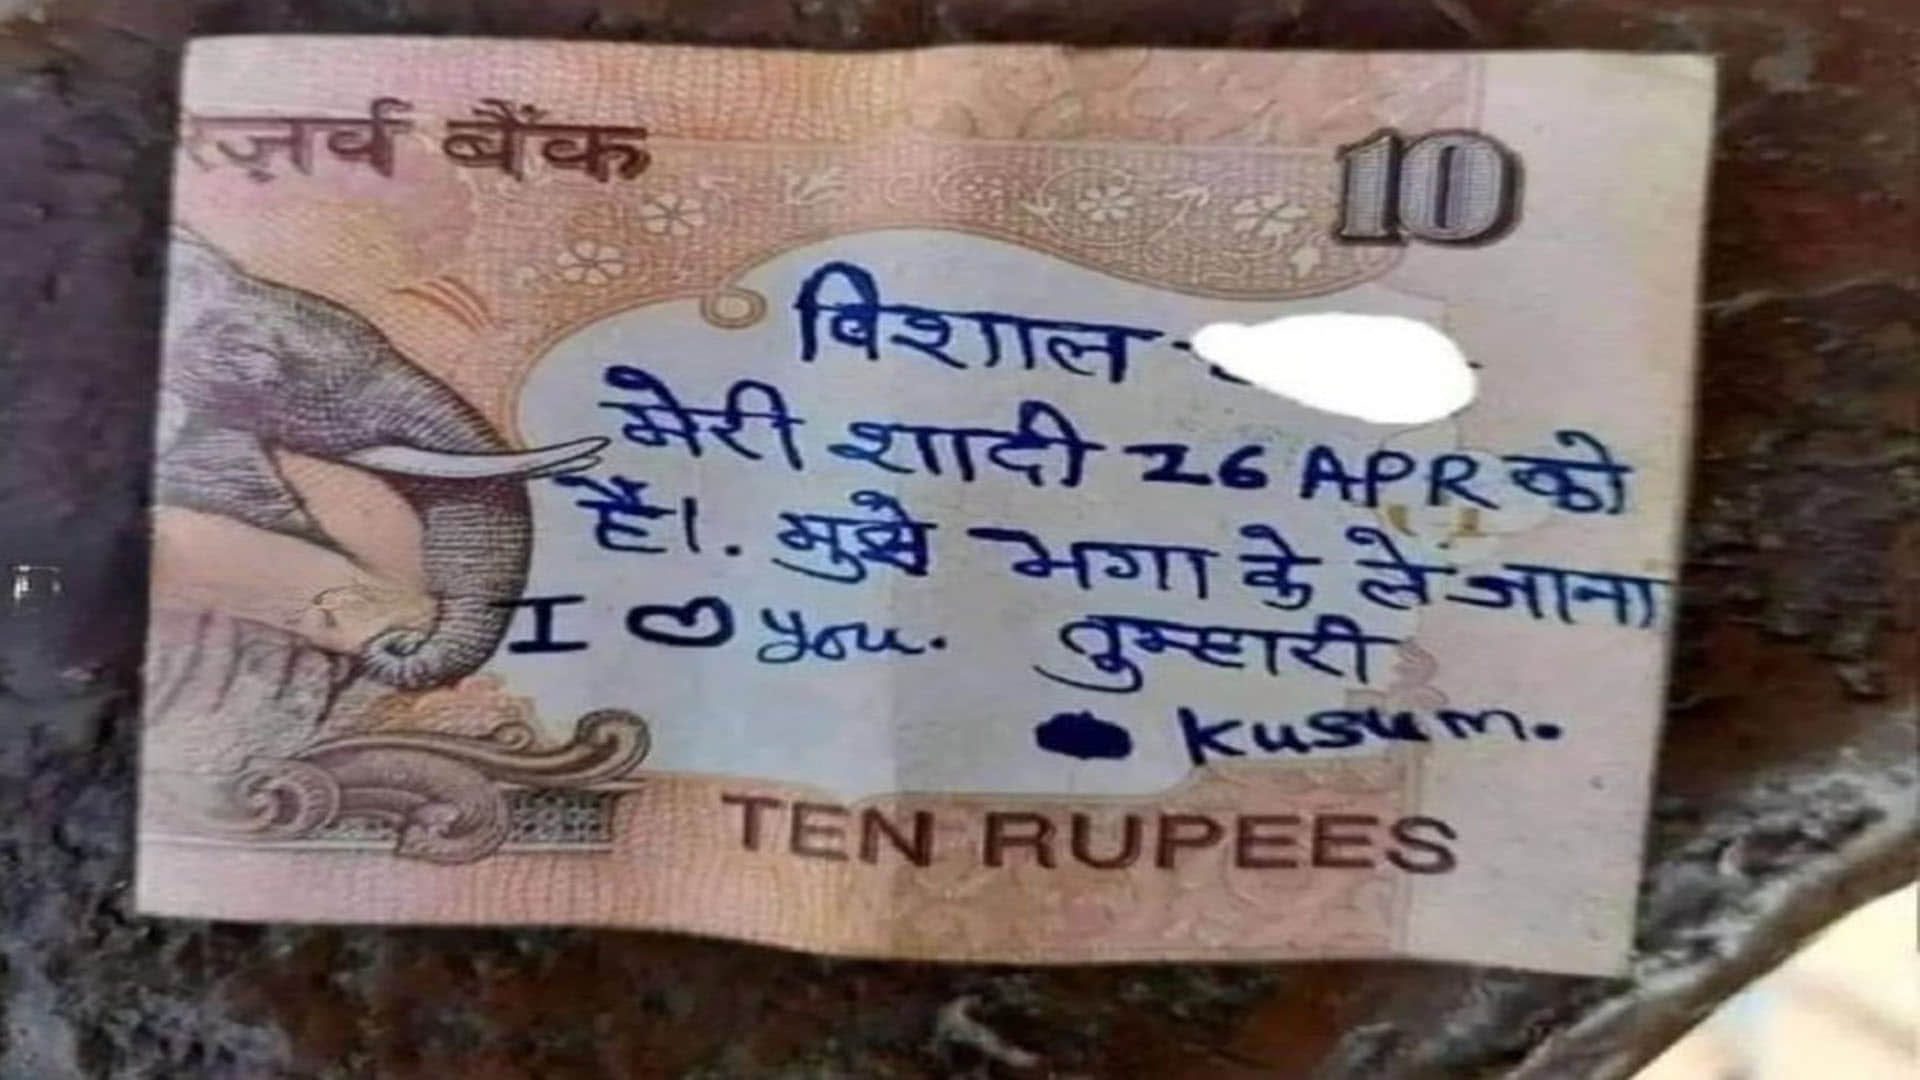 ज़र्व बैंक
10
विशाल
मेरी शादी 26 APR को
हैं।. मुझे भगा के ले जाना
I ♡ you. तुम्हारी
Kusum.
TEN RUPEES